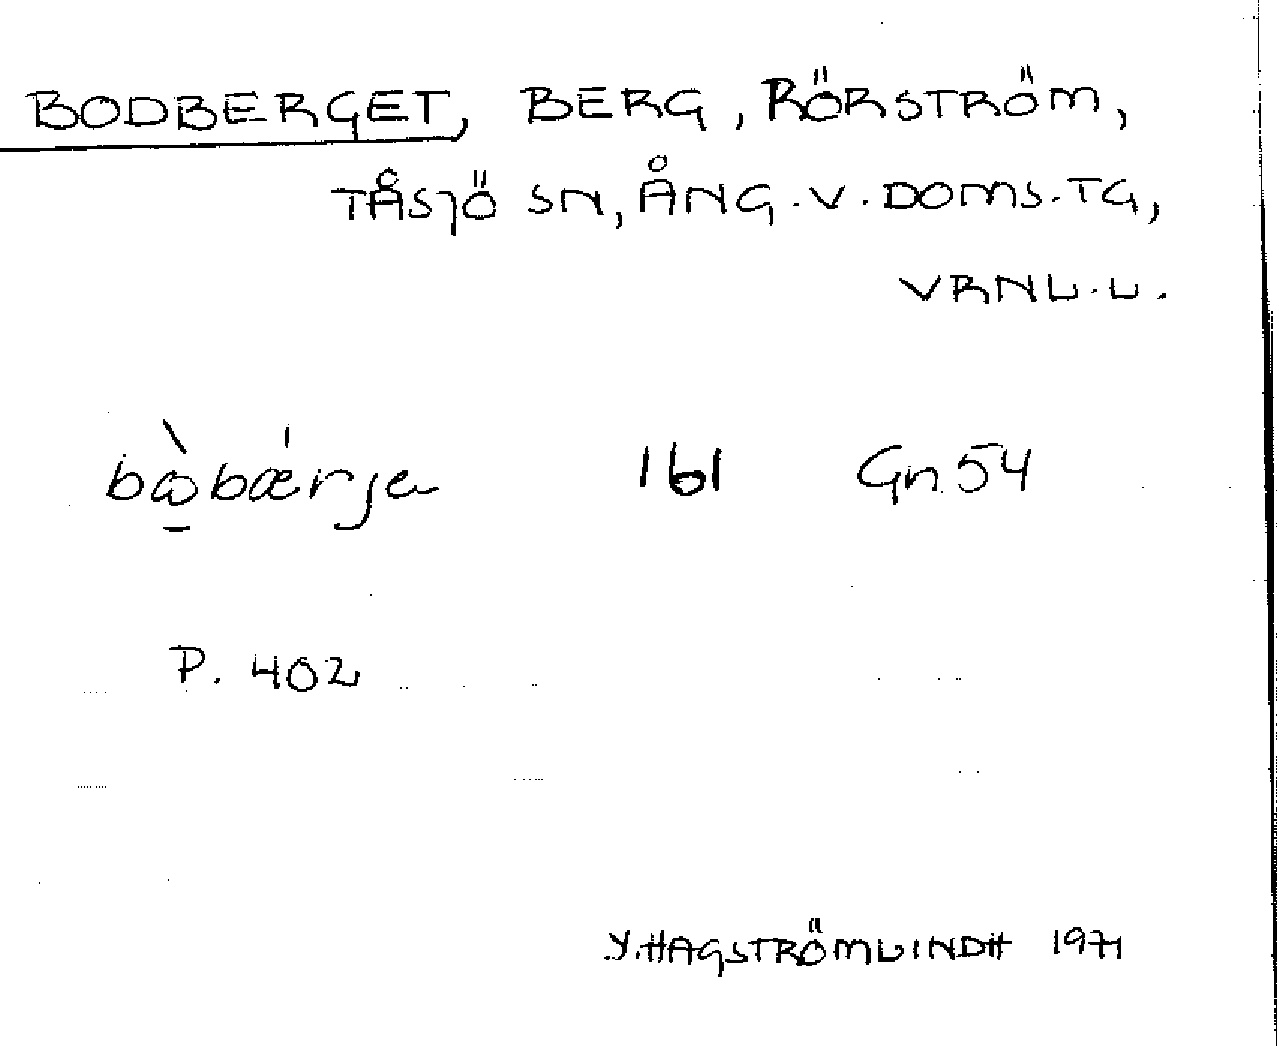 BODBERGET, BERG, RÖRSTRÖM,
TÅSJÖ SN, ÅNG. V. DOMS. TG,
VRNL. L.
bὼ̱bærja 161 Gn 54
P. 402
Y. HAGSTRÖM LINDH 1971